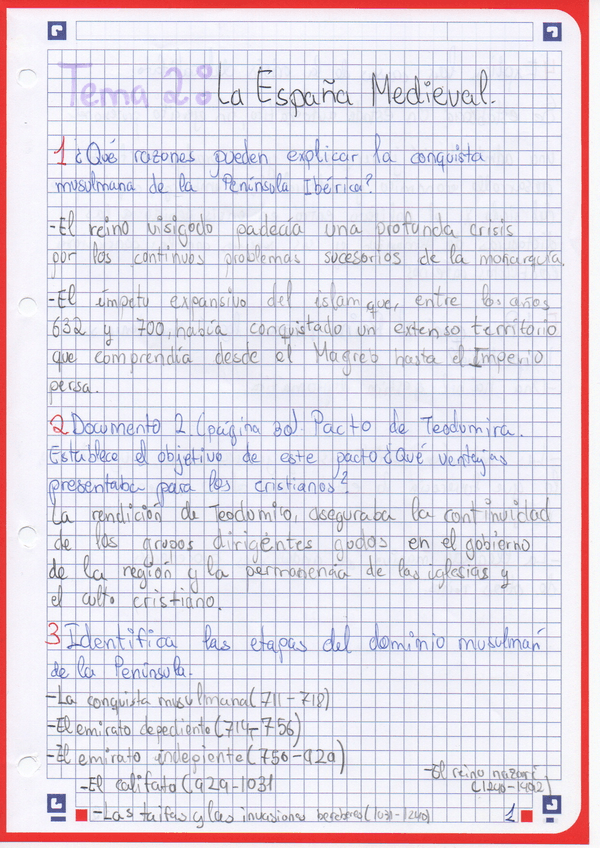 Tema 2: La España Medieval.
1 ¿Qué razones pueden explicar la conquista
musulmana de la Península Ibérica?
-El reino visigodo padecía una profunda crisis
por los continuos problemas sucesorios de la monarquía.
-El ímpetu expansivo del islam que, entre los años
632 y 700, había conquistado un extenso territorio
que comprendía desde el Magreb hasta el Imperio
persa.
2 Documento 2. (página 30). Pacto de Teodomira.
Establece el objetivo de este pacto ¿Qué ventajas
presentaba para los cristianos?
La rendición de Teodomiro, aseguraba la continuidad
de los grupos dirigentes godos en el gobierno
de la región y la permanencia de las iglesias y
el culto cristiano.
3 Identifica las etapas del dominio musulmán
de la Península.
-La conquista musulmana (711-718)
-El emirato depediente (714-756)
-El emirato indepiente (756-929)
-El califato (929-1031
-Las taifas y las invasiones bereberes (1031-1240)
-El reino nazarí
(1240-1492)
1